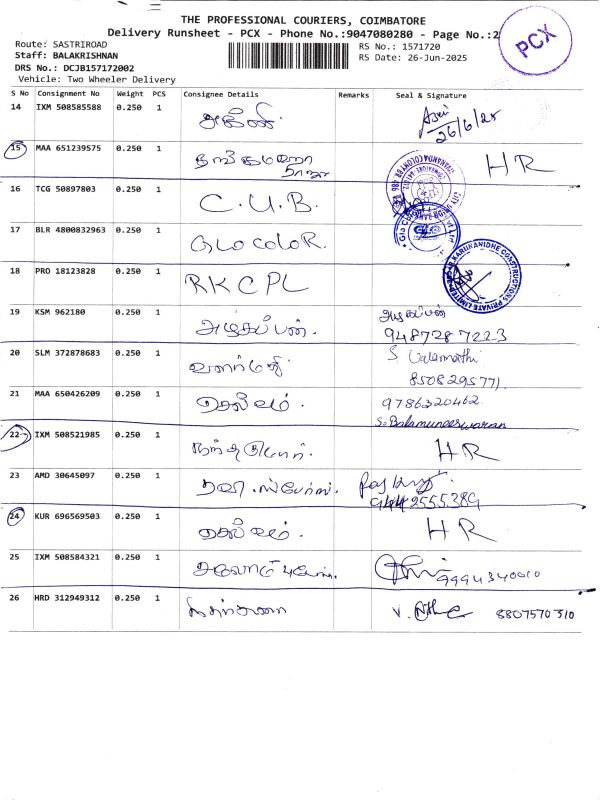 THE PROFESSIONAL COURIERS, COIMBATORE
Delivery Runsheet - PCX - Phone No.:9047080280 - Page No.:2
Route: SASTRIROAD
RS No.: 1571720
Staff: BALAKRISHNAN
RS Date: 26-Jun-2025
DRS No.: DCJB157172002
Vehicle: Two Wheeler Delivery
PCX
S No Consignment No Weight PCS Consignee Details Remarks Seal & Signature
14 IXM 508585588 0.250 1
26/6/25
15 MAA 651239575 0.250 1 HR
16 TCG 50897803 0.250 1 C.U.B.
17 BLR 4800832963 0.250 1 GLOCOLOR.
18 PRO 18123828 0.250 1 RKCPL
19 KSM 962180 0.250 1 அழகப்பன். அழகப்பன்
948728 7223
20 SLM 372878683 0.250 1 வளர்மதி S. Valarmathi
8508295771.
21 MAA 650426209 0.250 1 செல்வம். 9786320462.
S. Balamuneeswaran
22 IXM 508521985 0.250 1 HR
23 AMD 30645097 0.250 1
24 KUR 696569503 0.250 1 செல்வம். HR
25 IXM 508584321 0.250 1 9994340010
26 HRD 312949312 0.250 1 8807570310